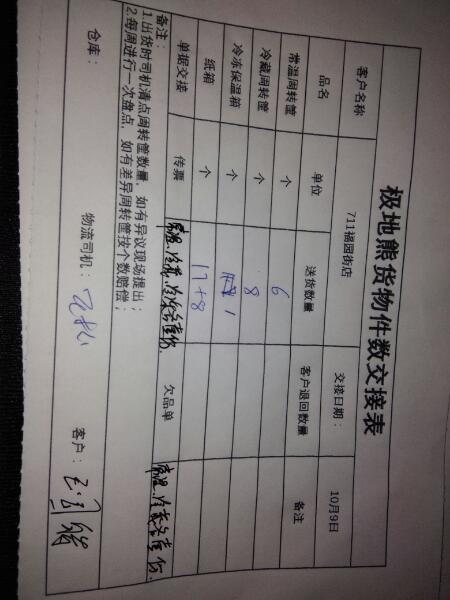 极地熊货物件数交接表
客户名称 711福园街店 交接日期： 10月9日
品名 单位 送货数量 客户退回数量 备注
常温周转筐 个 6
冷藏周转筐 个 8
冷冻保温箱 个 1
纸箱 个 17+8
单据交接 传票 常温.冷藏.冷冻各壹份. 欠品单 常温.冷藏各壹份.
备注：
1.出货时司机清点周转筐数量，如有异议现场提出；
2.每周进行一次盘点，如有差异周转筐按个数赔偿；
仓库： 物流司机： 客户：